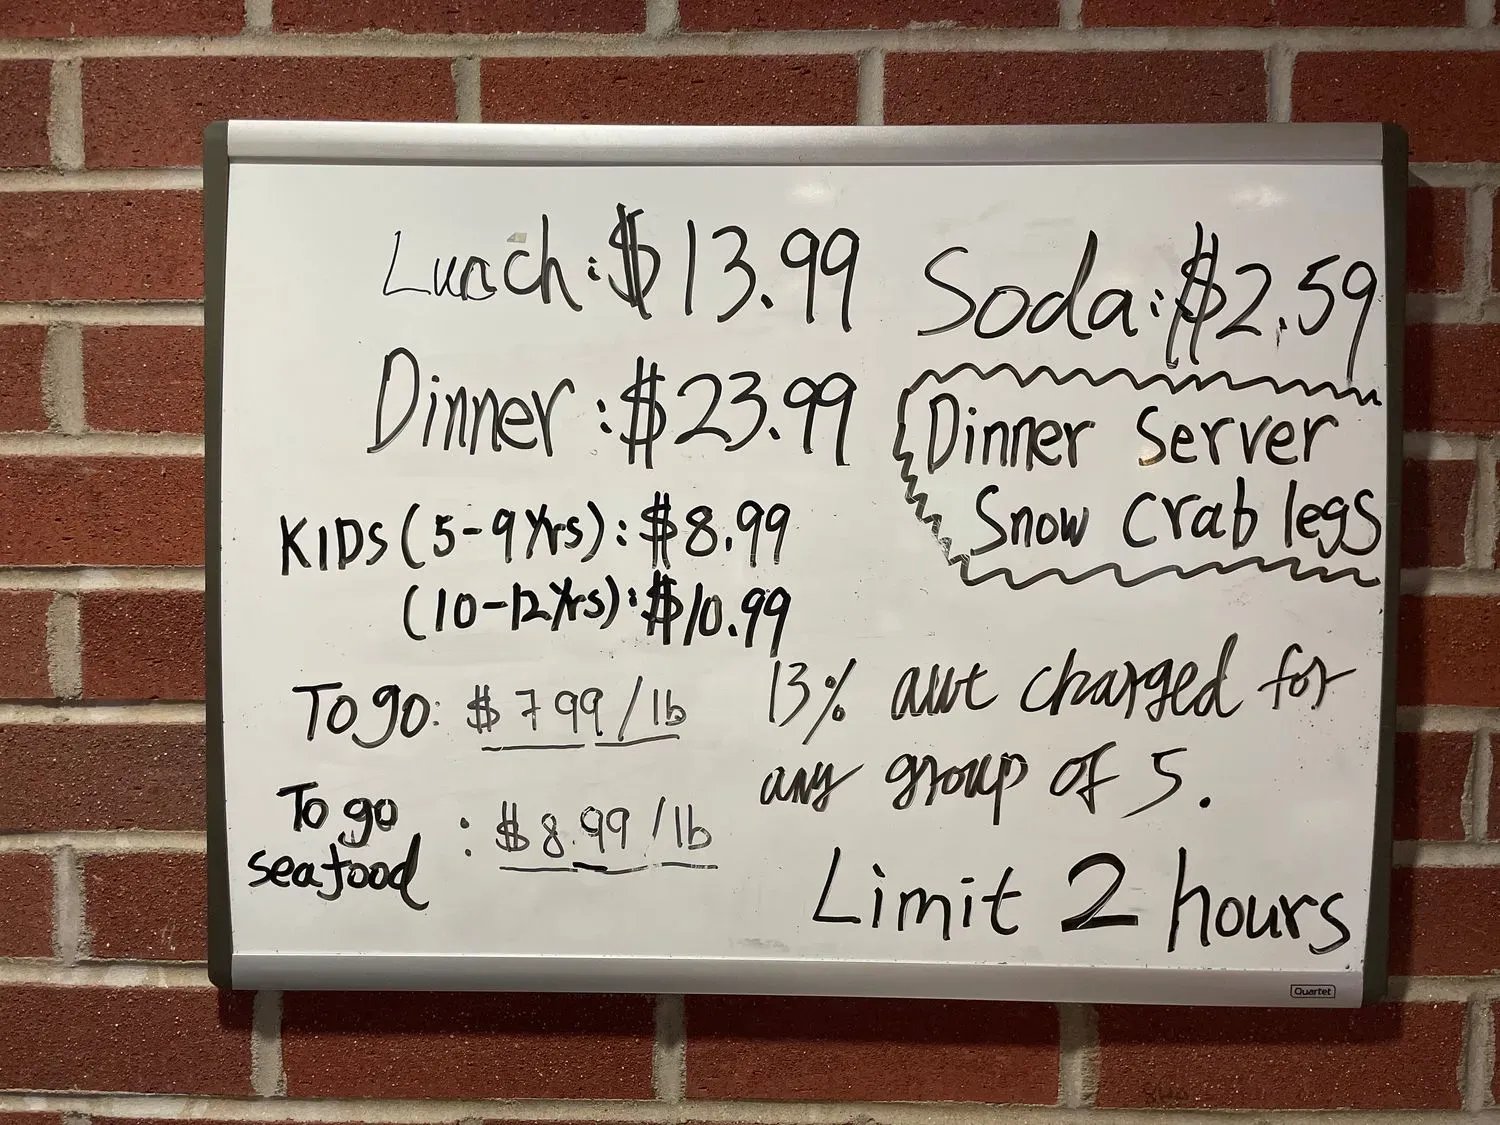 Lunch: $13.99
Dinner: $23.99
KIDS (5-9 Yrs): $8.99
(10-12 Yrs): $10.99
To go: $7.99/lb
To go
seafood : $8.99/lb
Soda: $2.59
Dinner Server
Snow crab legs
13% aut charged for
any group of 5.
Limit 2 hours
Quartet